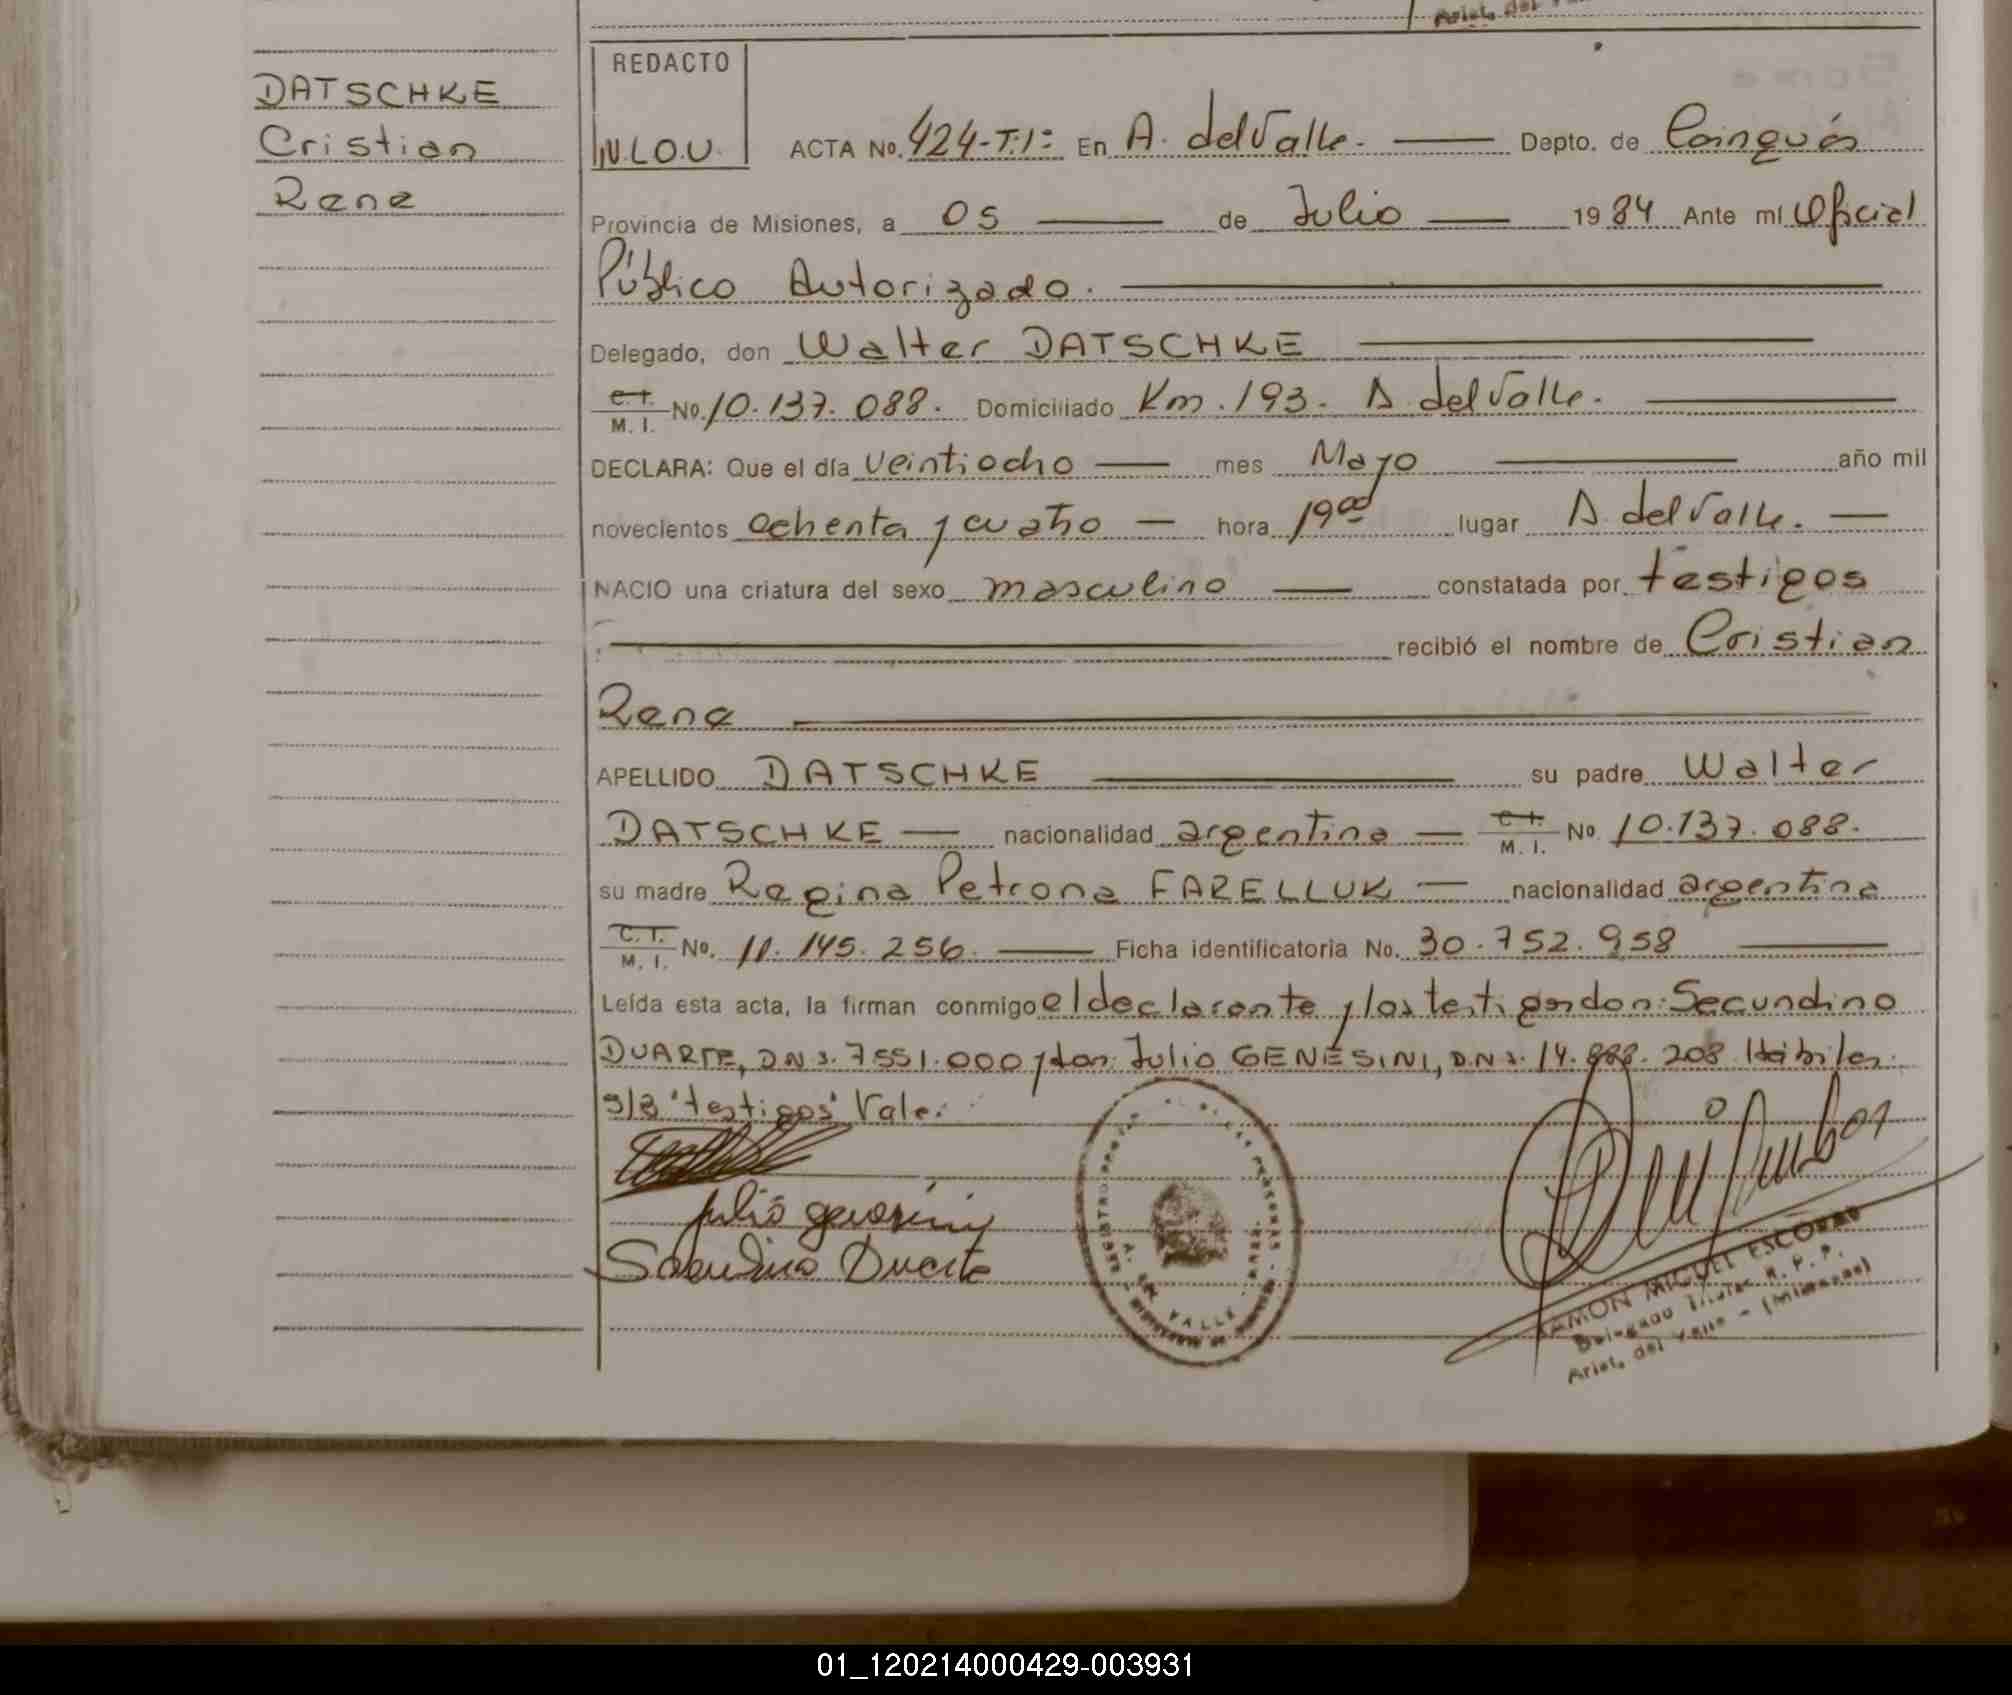 DATSCHKE
Cristian
Rene
REDACTO
N.L.O.U.
ACTA No. 424-T.I: En A. del Valle. Depto. de Cainguás
Provincia de Misiones, a 05 de Julio 1984 Ante mí Oficial
Público Autorizado.
Delegado, don Walter DATSCHKE
C.I. M.I. No. 10.137.088. Domiciliado Km. 193. A. del Valle.
DECLARA: Que el día veintiocho mes Mayo año mil
novecientos ochenta y cuatro hora 19 00 lugar A. del Valle.
NACIO una criatura del sexo masculino constatada por testigos
recibió el nombre de Cristian
Rene
APELLIDO DATSCHKE su padre Walter
DATSCHKE nacionalidad argentina C.I. M.I. No. 10.137.088.
su madre Regina Petrona FARELLUK nacionalidad argentina
C.I. M.I. No. 11.145.256. Ficha identificatoria No. 30.752.958
Leída esta acta, la firman conmigo el declarante y los testigos don: Secundino
DUARTE, D.N.I. 7551.000 y don: Julio GENESINI, D.N.I. 14. 208 Hábiles.
s/b "testigos" Vale.
Julio genesini
Secundino Duarte
A. DEL VALLE
RAMON MIGUEL ESCOBAR
Delegado Titular R. P. P.
Arist. del Valle - (Misiones)
01_120214000429-003931